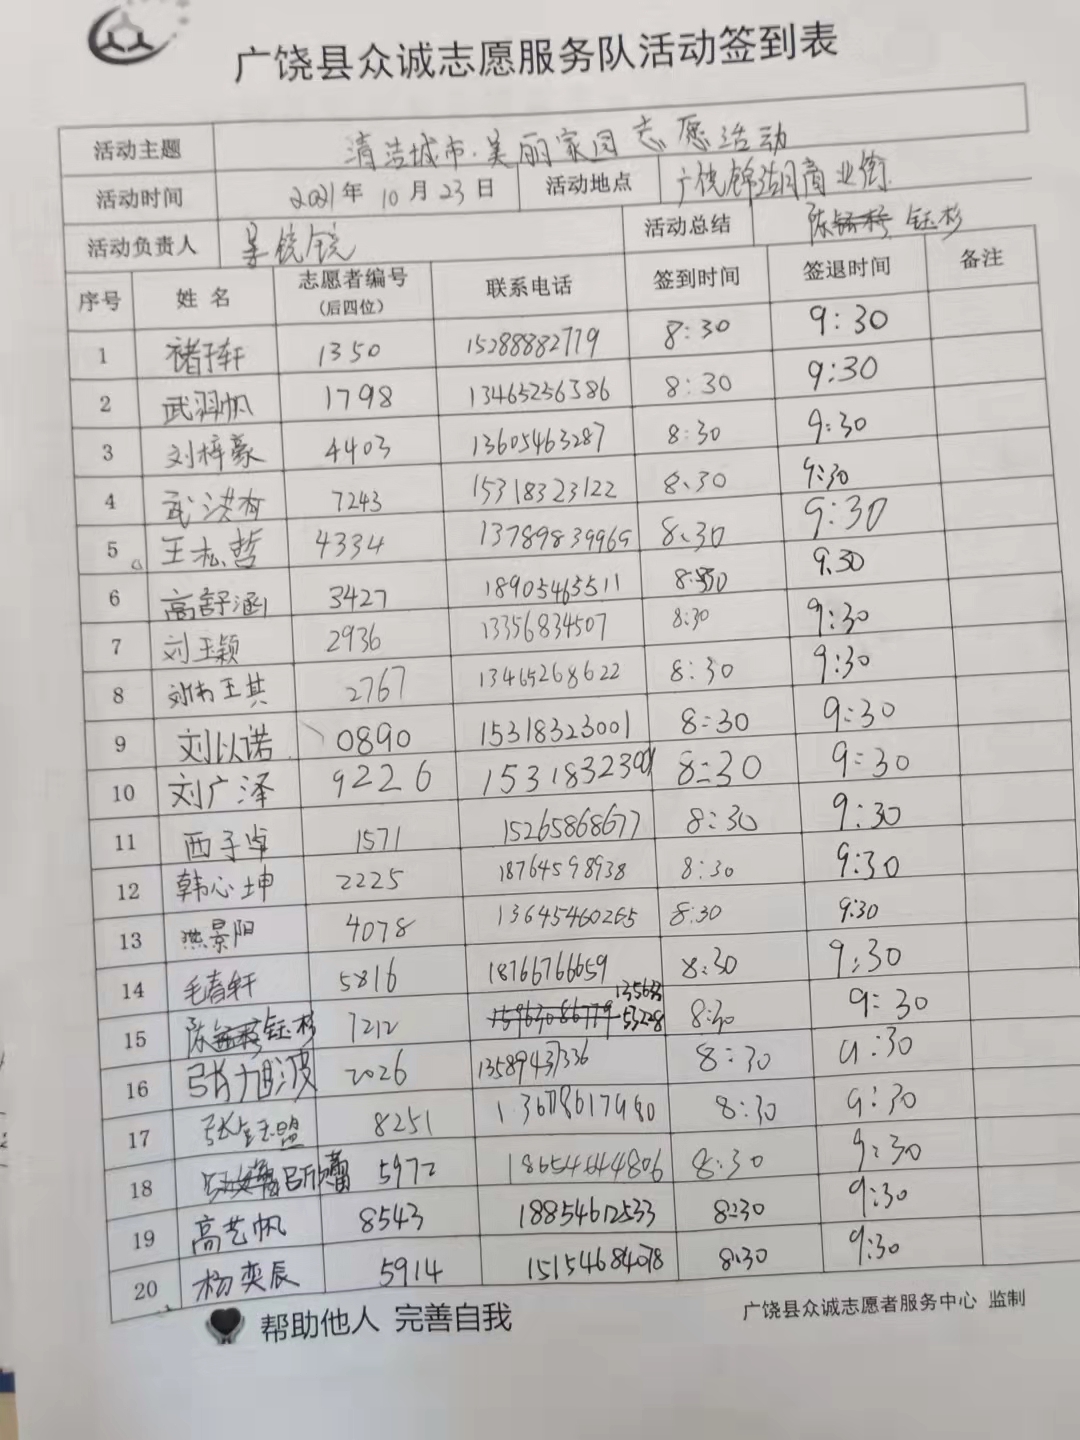 广饶县众诚志愿服务队活动签到表
活动主题 清洁城市·美丽家园志愿活动
活动时间 2021年 10月23日 活动地点 广饶锦湖商业街
活动负责人 活动总结 陈 钰杉
序号 姓名 志愿者编号(后四位) 联系电话 签到时间 签退时间 备注
1 褚子轩 1350 15288882779 8:30 9:30
2 武羽帆 1798 13465256386 8:30 9:30
3 刘梓豪 4403 13605463287 8:30 9:30
4 武洪 7243 15318323122 8:30 9:30
5 王泓哲 4334 13789839965 8:30 9:30
6 高舒涵 3427 18905465511 8:30 9:30
7 刘玉颖 2936 13356834507 8:30 9:30
8 2767 13465268622 8:30 9:30
9 刘以诺 0890 15318323001 8:30 9:30
10 刘广泽 9226 15318323001 8:30 9:30
11 西子卓 1571 15265868677 8:30 9:30
12 韩心坤 2225 18764598938 8:30 9:30
13 燕景阳 4078 13645460265 8:30 9:30
14 毛春轩 5816 18766766659 8:30 9:30
15 陈 钰杉 7212 13563353228 8:30 9:30
16 张旭波 2026 13589437336 8:30 9:30
17 张钰盟 8251 13678617980 8:30 9:30
18 吕欣蕾 5972 18654644806 8:30 9:30
19 高艺帆 8543 18854612533 8:30 9:30
20 杨奕辰 5914 15154684078 8:30 9:30
帮助他人 完善自我
广饶县众诚志愿者服务中心 监制